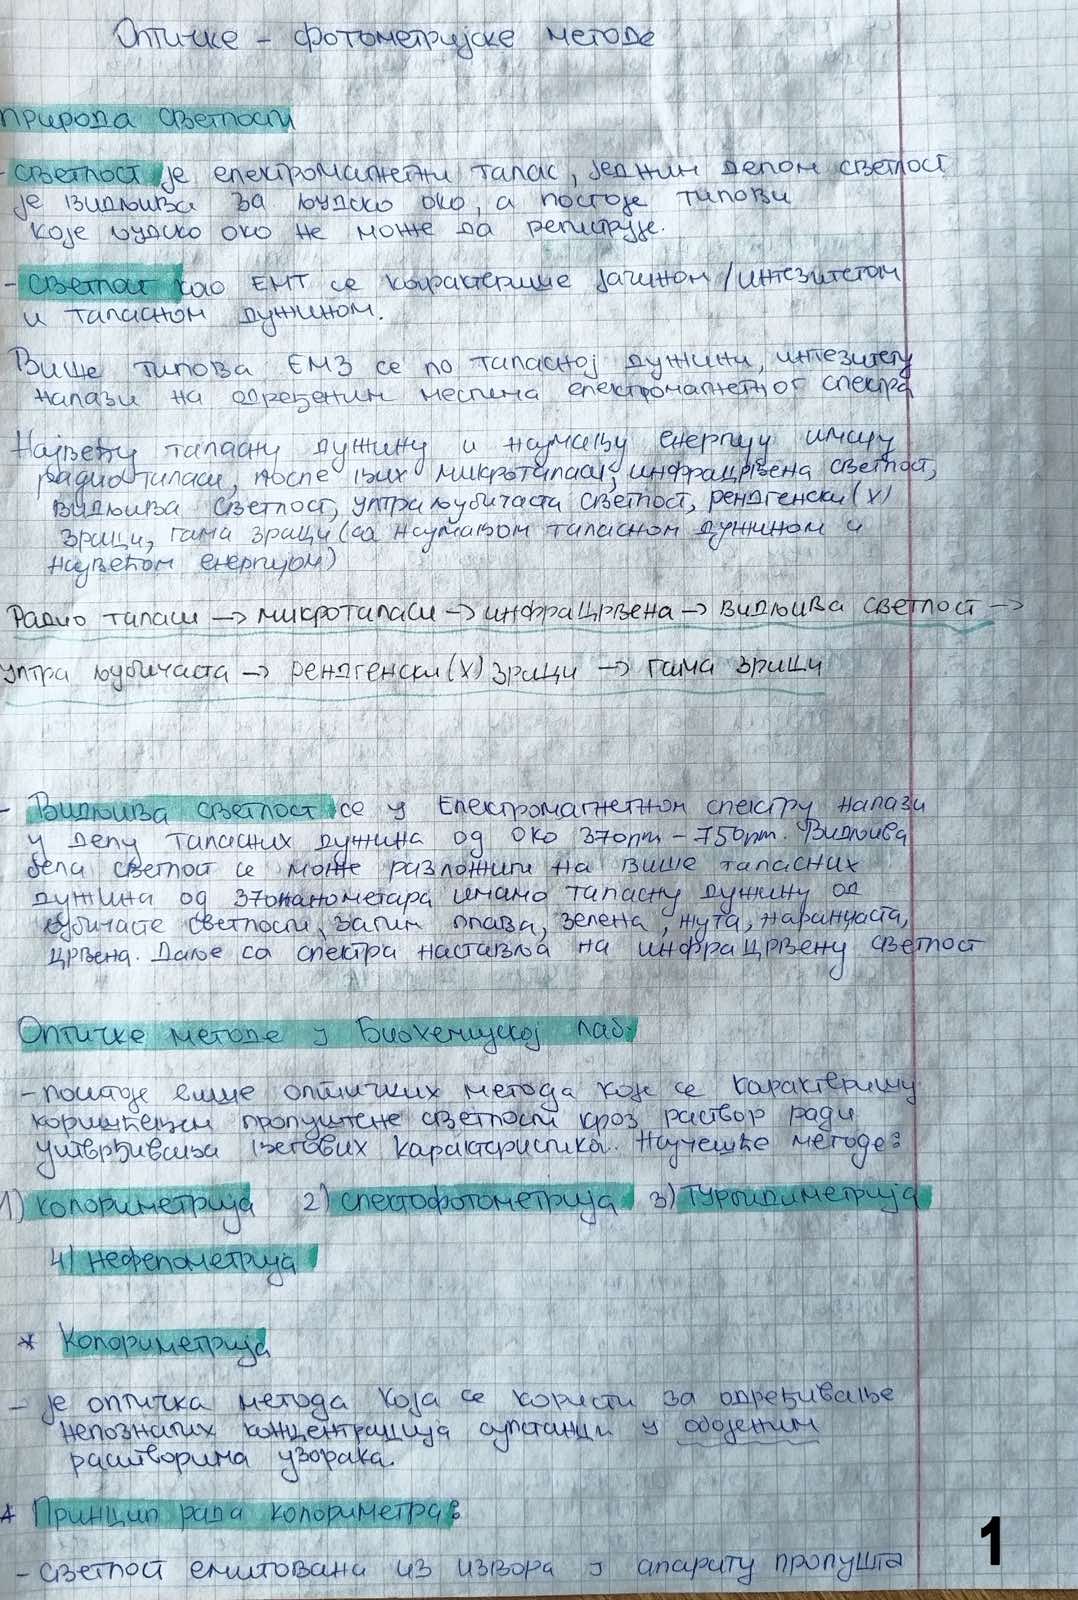 Оптичке - фотометријске методе
Природа светлости
- Светлост је електромагнетни талас, једним делом светлост
је видљива за људско око, а постоје типови
које људско око не може да региструје.
- Светлост као ЕМТ се карактерише јачином/интезитетом
и таласном дужином.
Више типова ЕМЗ се по таласној дужини, интезитету
налази на одређеним местима електромагнетног спектра
Највећу таласну дужину и најмању енергију имају
радио таласи, после њих микроталаси, инфрацрвена светлост,
видљива светлост, ултраљубичаста светлост, рендгенски (X)
зраци, гама зраци (са најмањом таласном дужином и
највећом енергијом)
Радио таласи → микроталаси → инфрацрвена → видљива светлост →
ултра љубичаста → рендгенски (X) зраци → гама зраци
- Видљива светлост се у Електромагнетном спектру налази
у делу таласних дужина од око 370nm - 750nm. Видљива
бела светлост се може разложити на више таласних
дужина од 370нанометара имамо таласну дужину од
љубичасте светлости, затим плава, зелена, жута, наранџаста,
црвена. Даље са спектра наставља на инфрацрвену светлост
Оптичке методе у Биохемијској лаб.
- постоје више оптичких метода које се карактеришу
коришћењем пропуштене светлости кроз раствор ради
утврђивања његових карактеристика. Најчешће методе:
1) колориметрија 2) спектофотометрија 3) турбидиметрија
4) нефелометрија
* Колориметрија
- је оптичка метода која се користи за одређивање
непознатих концентрација супстанци у обојеним
растворима узорака.
* Принцип рада колориметра:
- светлост емитована из извора у апарату пропушта
1